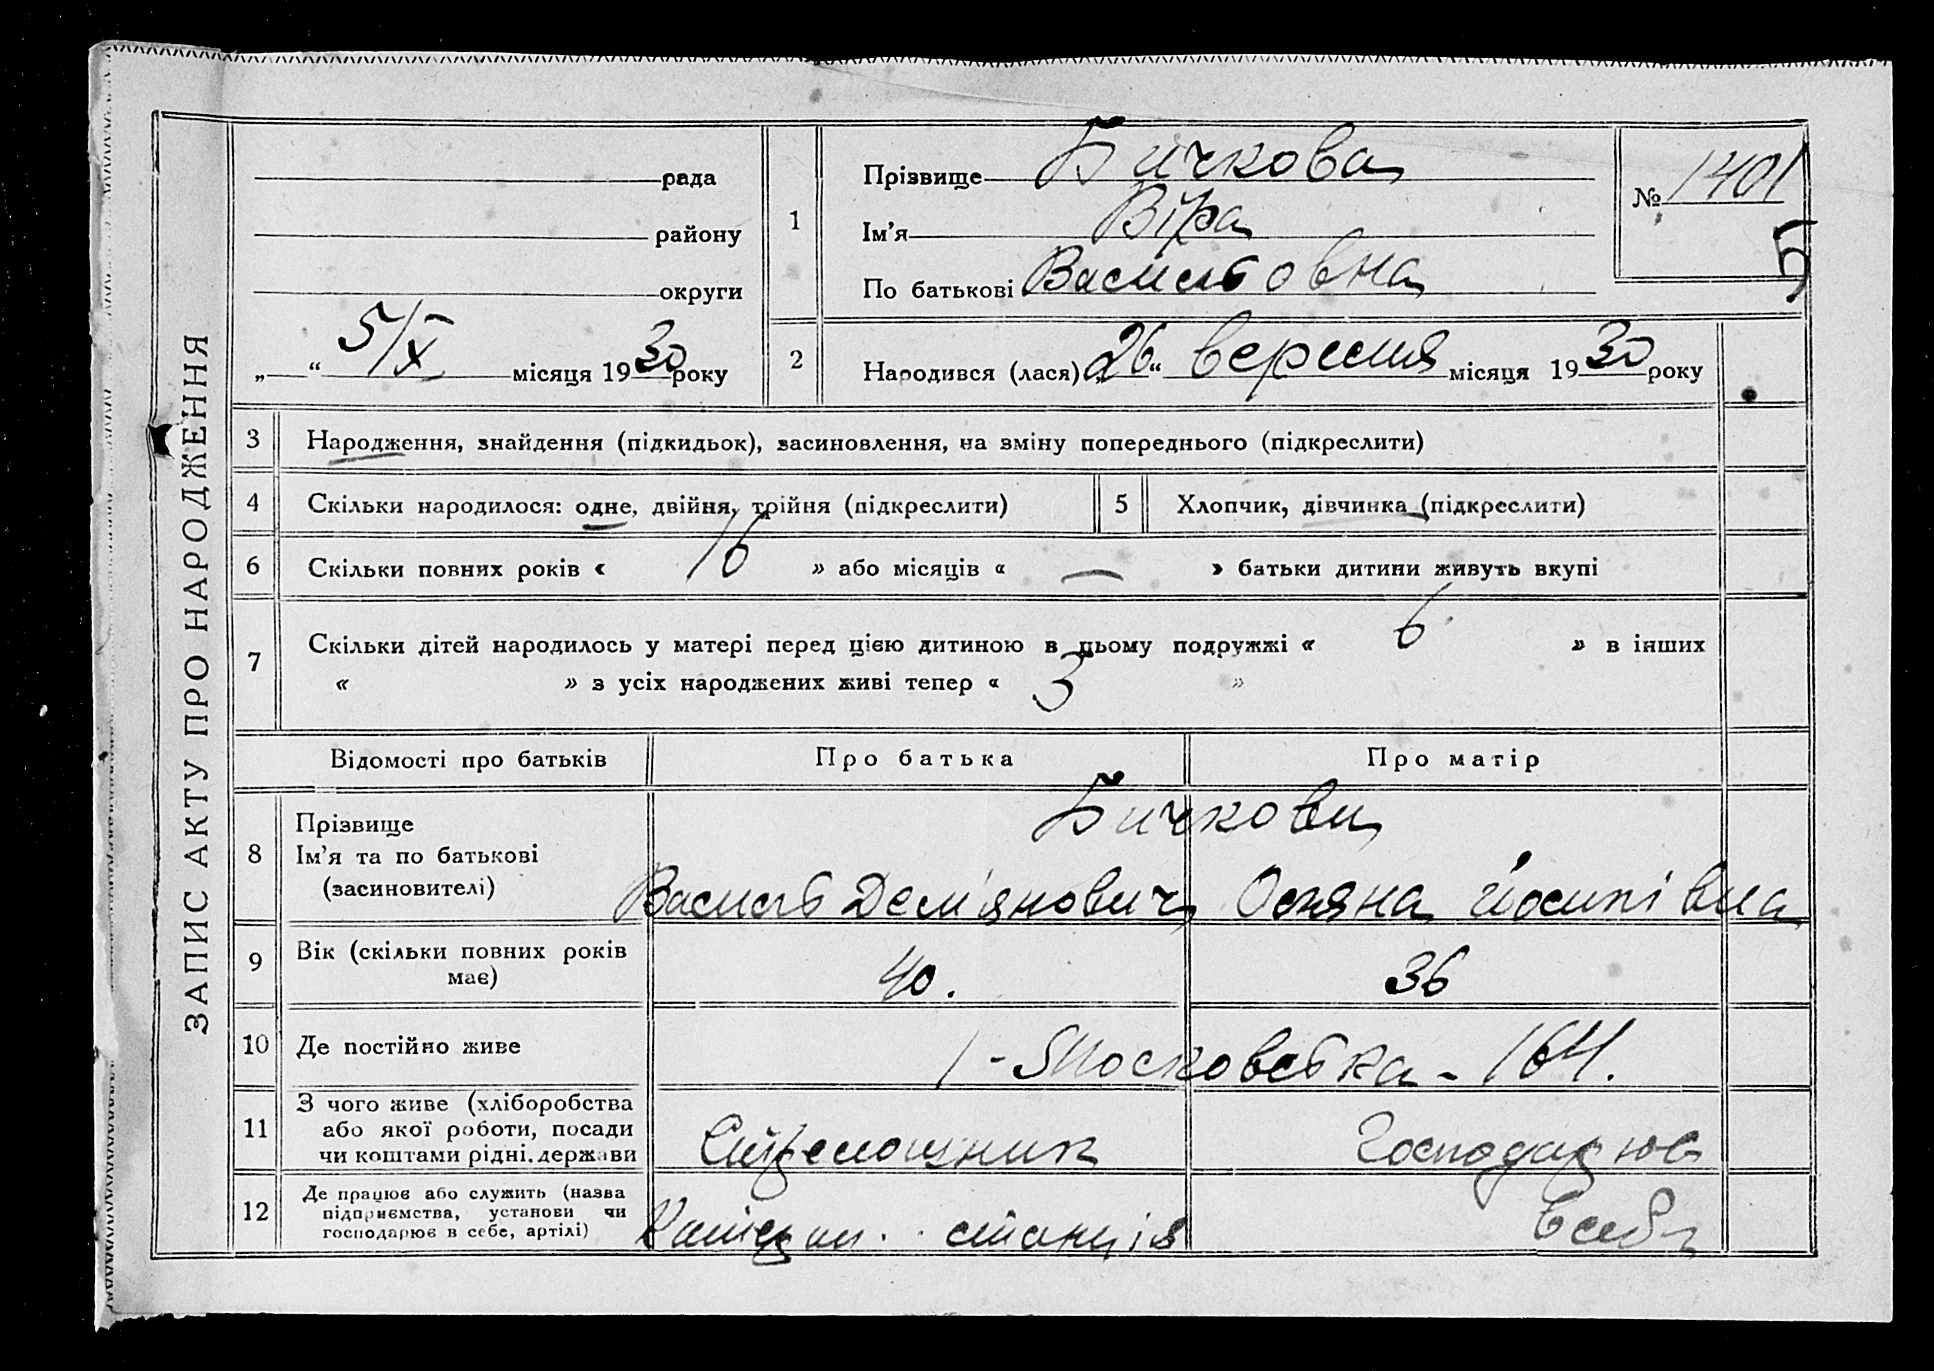 ЗАПИС АКТУ ПРО НАРОДЖЕННЯ
рада
району
округи
5/X
„ “ місяця 1930 року
1
Прізвище Бичкова
Ім’я Віра
По батькові Васильовна
№ 1401
Б
2
Народився (лася) „26“ вересня місяця 1930 року
3 Народження, знайдення (підкидьок), засиновлення, на зміну попереднього (підкреслити)
4 Скільки народилося: одне, двійня, трійня (підкреслити)
5 Хлопчик, дівчинка (підкреслити)
6 Скільки повних років « 16 » або місяців « — » батьки дитини живуть вкупі
7 Скільки дітей народилось у матері перед цією дитиною в цьому подружжі « 6 » в інших
« » з усіх народжених живі тепер « 3 »
Відомості про батьків Про батька Про матір
8 Прізвище
Ім’я та по батькові
(засиновителі)
Бичкови
Василь Дем'янович Йосипівна
9 Вік (скільки повних років
має)
40. 36
10 Де постійно живе
1 - Московська - 164.
11 З чого живе (хліборобства
або якої роботи, посади
чи коштами рідні. держави
Стрелошник Господарює
12 Де працює або служить (назва
підприємства, установи чи
господарює в себе, артілі)
станція в себе